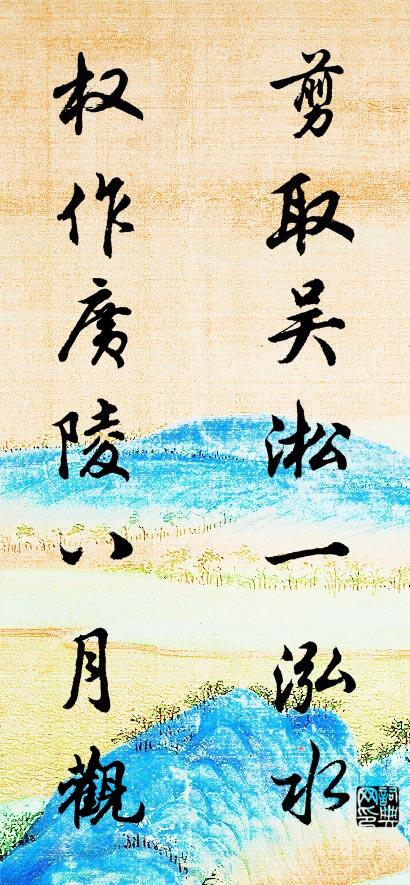 剪取吴淞一泓水
权作廣陵八月觀